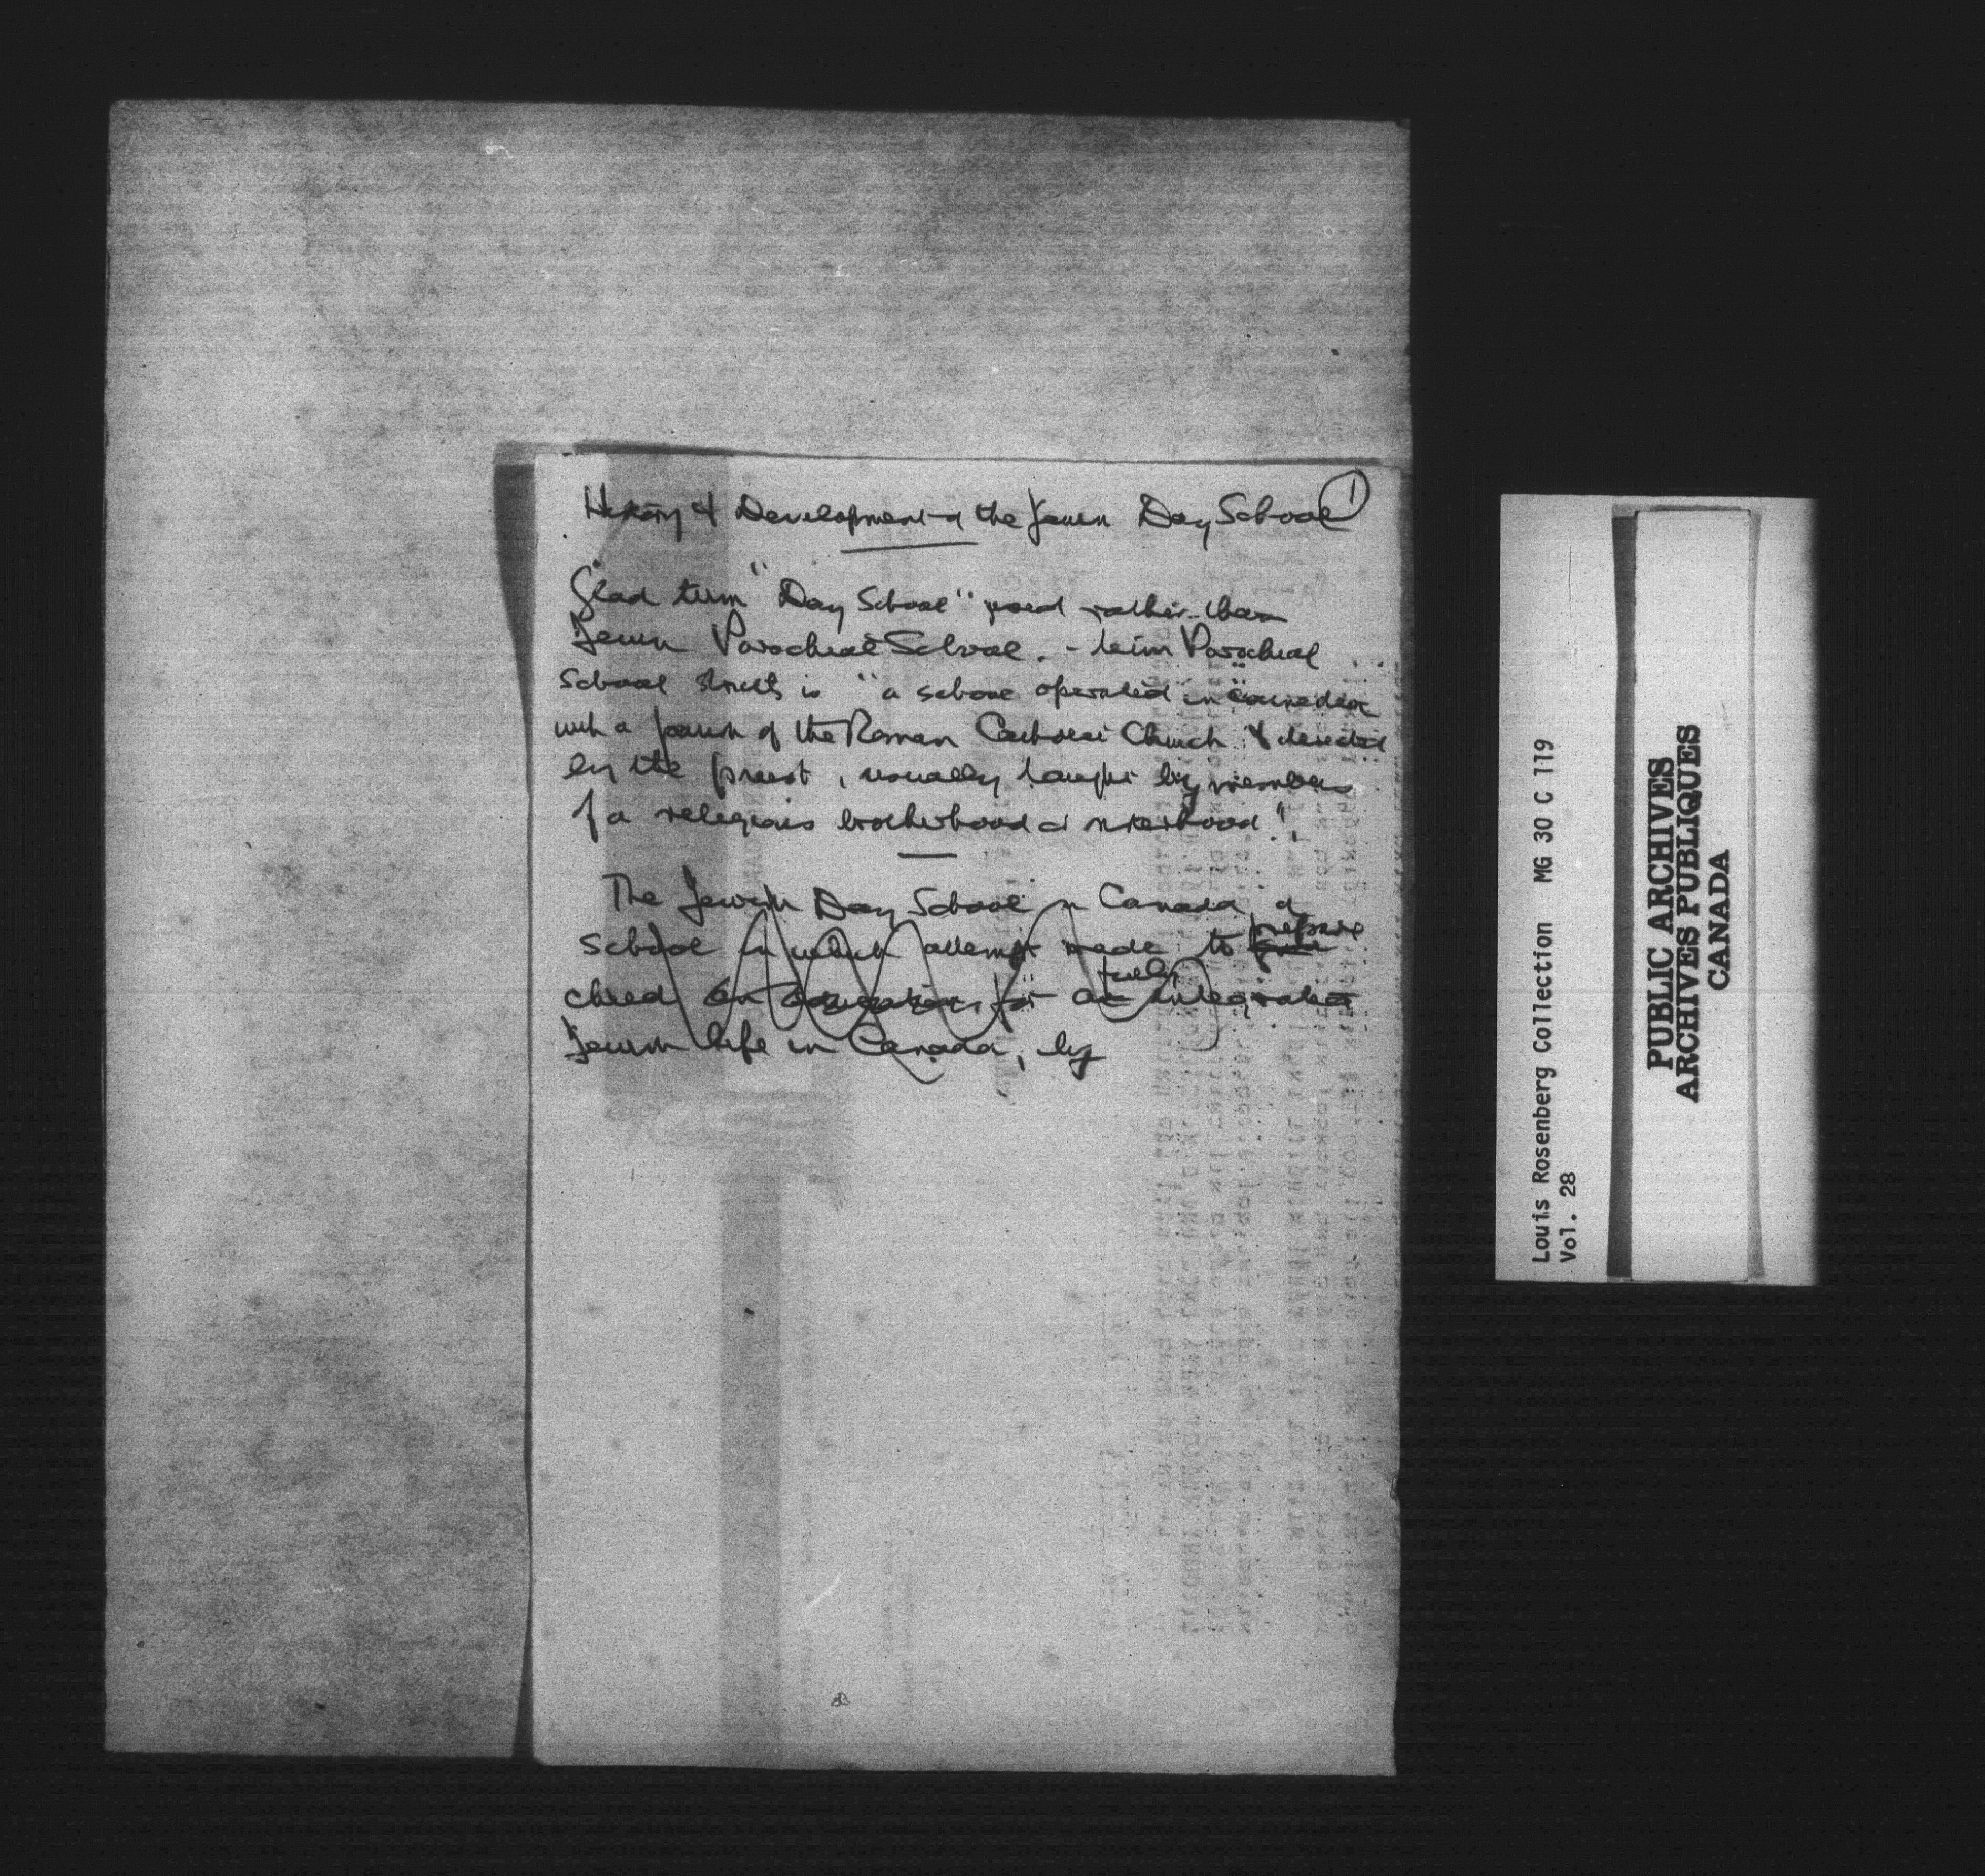 History & Development of the Jewish Day School
1
Glad term "Day School" used rather than
Jewish Parochial School. - term Parochial
School strictly is "a school operated in connection
with a parish of the Roman Catholic Church & directed
by the priest, usually taught by members
of a religious brotherhood or sisterhood".
The Jewish Day School in Canada a
School in which attempt made to prepare
child an education for a fully integrated
Jewish life in Canada, by
Louis Rosenberg Collection MG 30 C 119
Vol. 28
PUBLIC ARCHIVES
ARCHIVES PUBLIQUES
CANADA